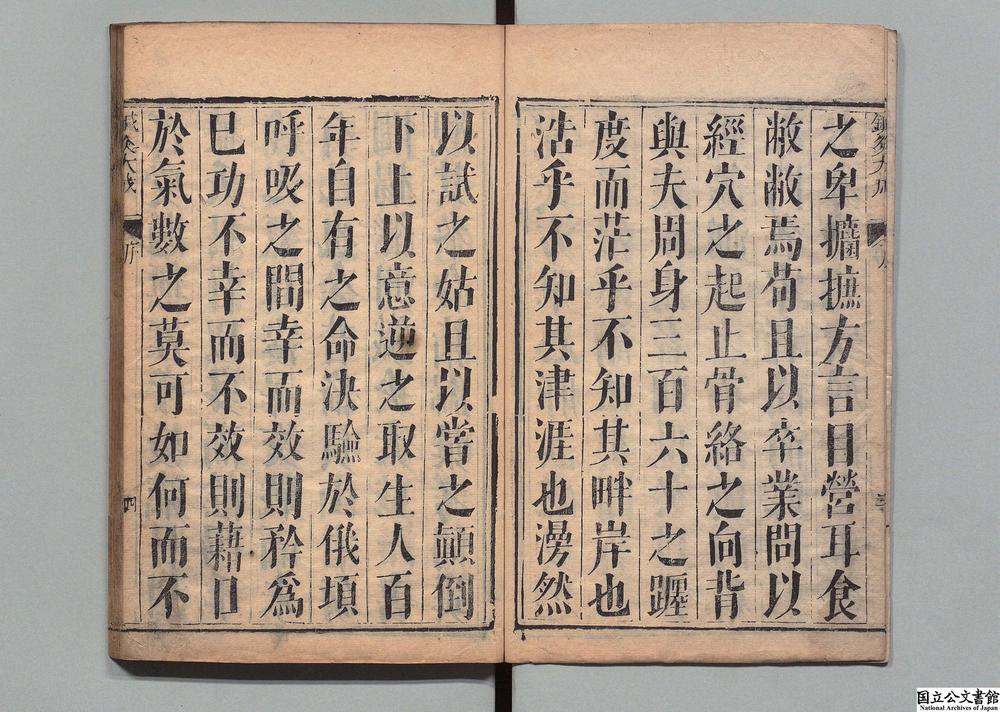 之卑攟摭方言目營耳食
敝敝焉苟且以卒業問以
經穴之起止骨絡之向背
與夫周身三百六十之躔
度而茫乎不知其畔岸也
浩乎不知其津涯也漫然
以試之姑且以嘗之顛倒
下上以意逆之取生人百
年自有之命決驗於俄頃
呼吸之間幸而效則矜為
已功不幸而不效則藉口
於氣數之莫可如何而不
鍼灸大成
序
四
国立公文書館
National Archives of Japan